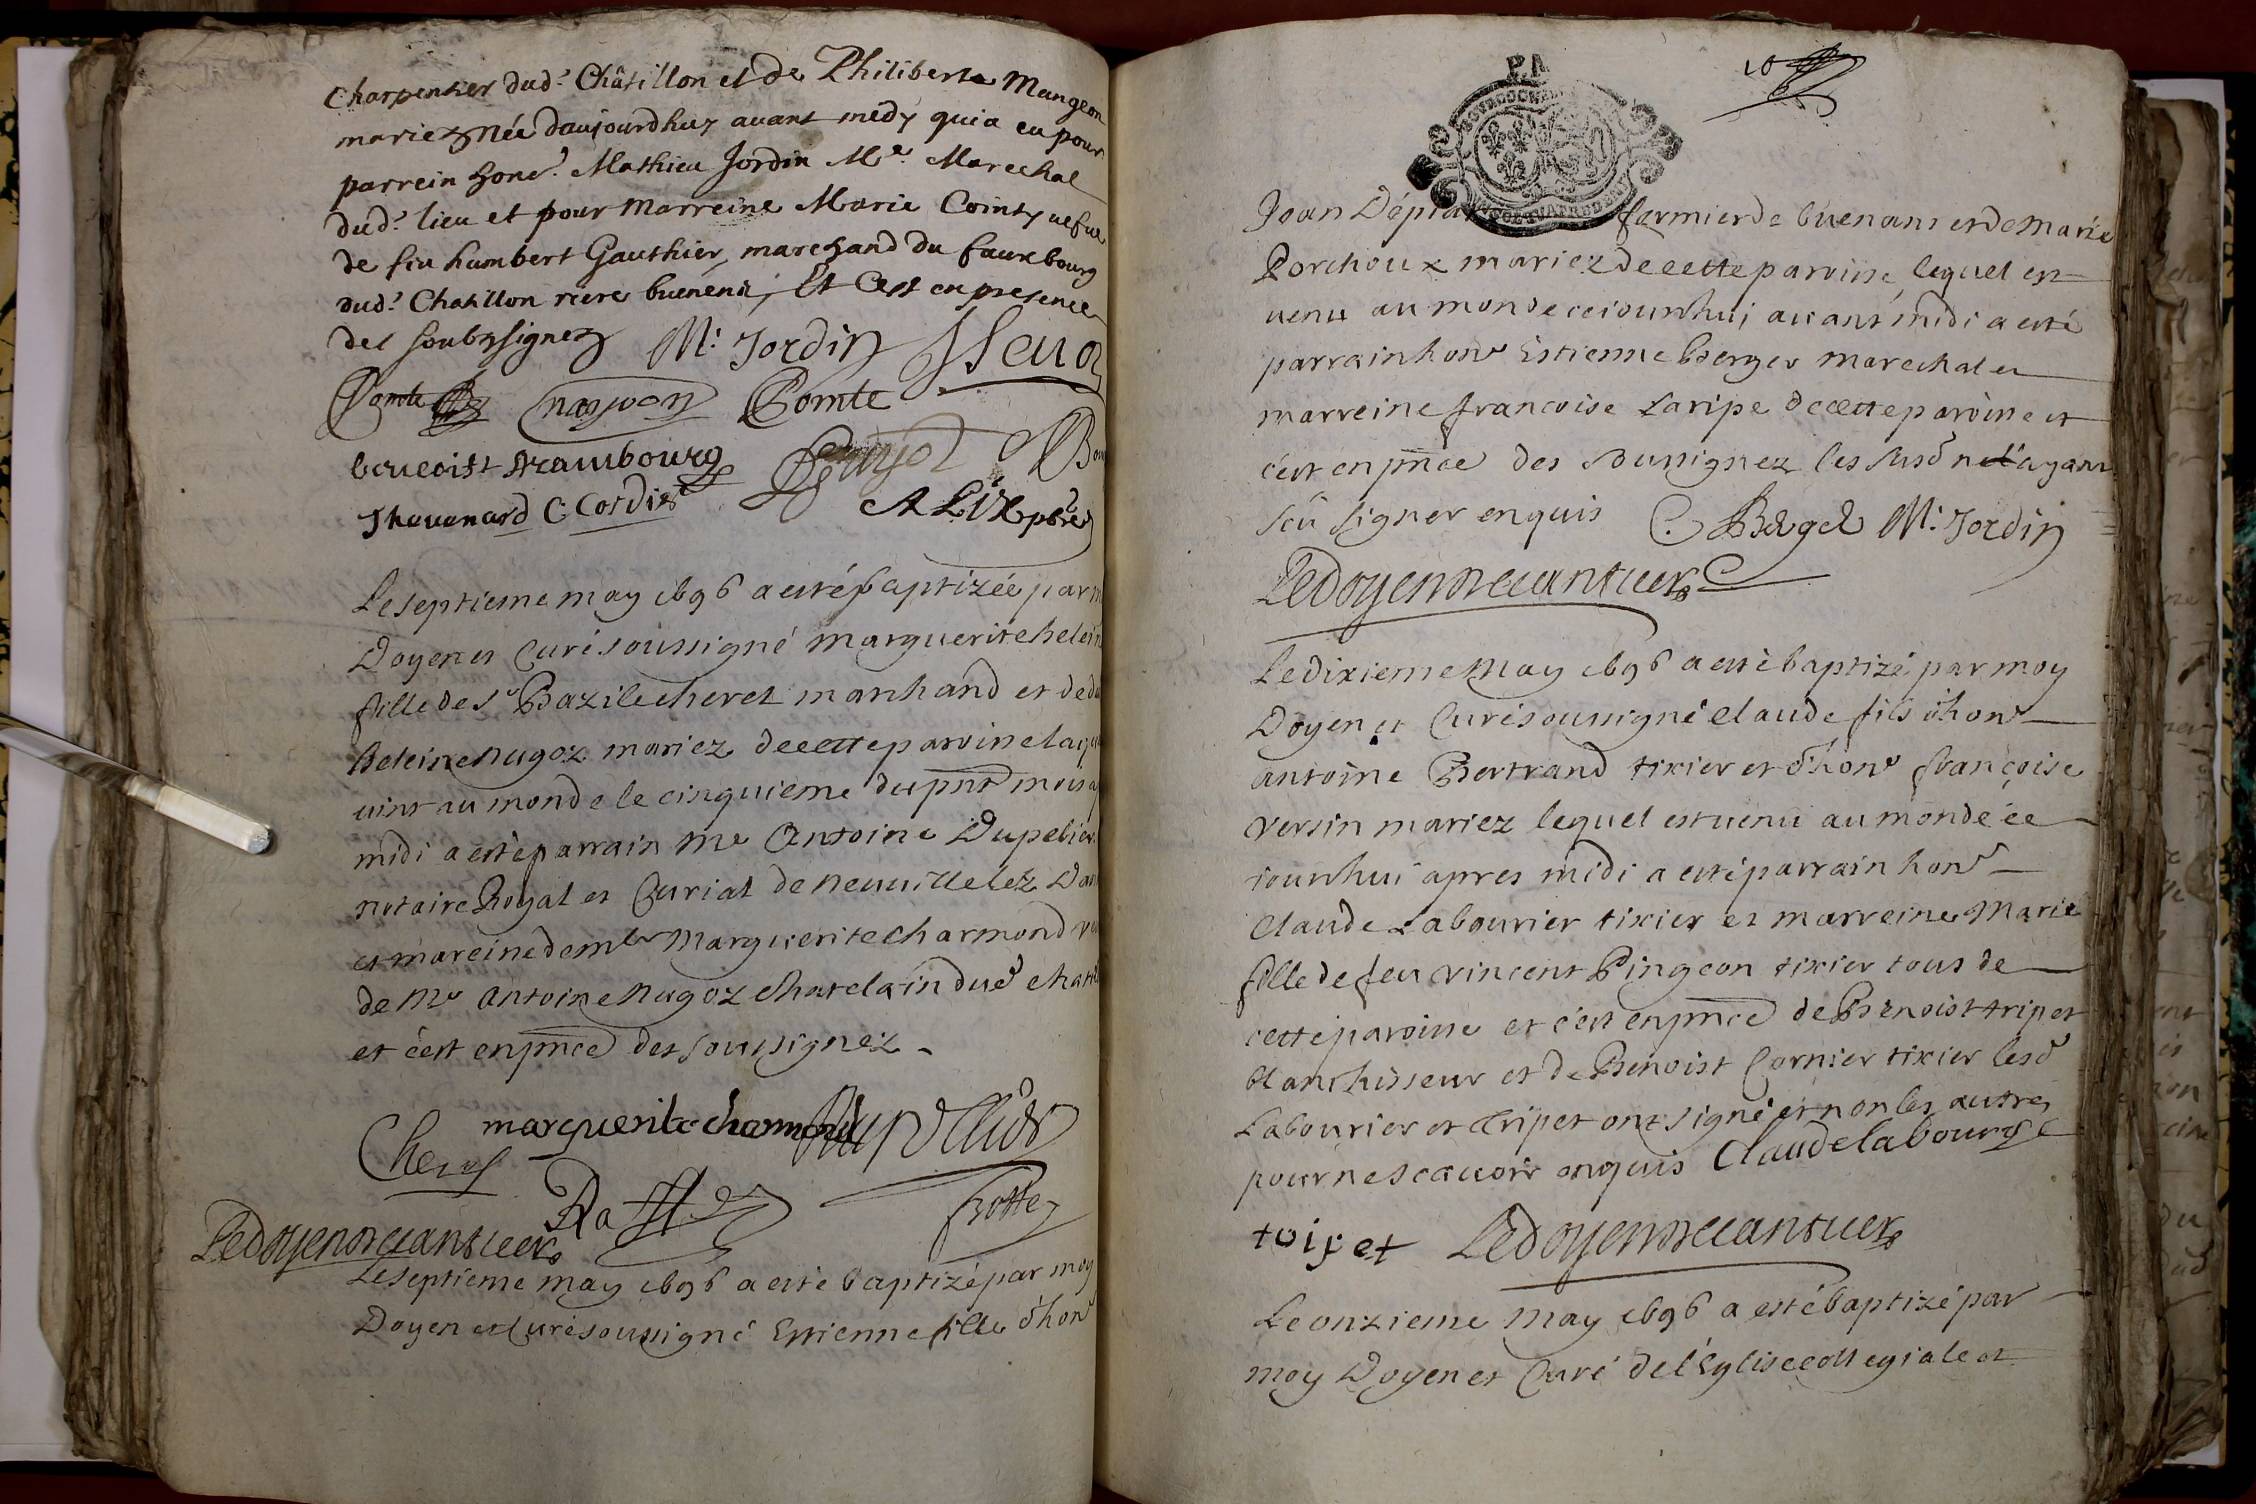 Charpentier dud.^t Châtillon et de Philiberte Mangeon
mariez née daujourdhuy avant midy qui a eu pour
parrein hone.^t Mathieu Jordin M.^e Marechal
dud.^t lieu et pour Marreine Marie Cointy vefue
de feu humbert Gauthier, marchand du fauxbourg
dud.^t Chatillon riere buenent, Et Cest en presence
des soubzsignez M: Jordin
Comte Comte
benoist
Thevenard C Cordier ALIX pbre
Le septieme may 1696 a esté baptizée par m
Doyen et Curé soussigné marguerite helein
fille de s^r Bazile cheret marchand et de d
heleine nugoz mariez de cette paroisse laqu
vint au monde le cinquieme du pnt mois a
midi a esté parrain m^e Antoine Dupelier
notaire Royal et Curial de neuville lez Dam
et mareine dem^lle Marguerite charmond v
de M^e Antoine nugoz chatelain dud chati
et c'est en pnce des soussignez -
marguerite charmond
Cheret
Le doyen
Le septieme may 1696 a esté baptizé par moy
Doyen et Curé soussigné Estienne fille d'hon^e
10
Jean fermier de buenans et de Marie
Porchoux mariez de cette paroisse, lequel est
venu au monde ceiourdhui avant midi a esté
parrain hon^e Estienne Berger marechal et
marreine francoise Laripe de cette paroisse et
c'est en pnce des soussignez les susd n'ayant
sçû signer enquis Berger M: Jordin
Le doyen
Le dixieme May 1696 a esté baptizé par moy
Doyen et Curé soussigné Claude fils d'hon^e
antoine Bertrand tixier et d'hon^e françoise
versin mariez lequel est venu au monde ce
iourdhui apres midi a esté parrain hon^e
Claude Labourier tixier et marreine Marie
fille de feu vincent Pingeon tixier tous de
cette paroisse et c'est en pnce de Benoist tripet
blanchisseur et de Benoist Cornier tixier lesd
Labourier et tripet ont signé et non les autres
pour ne scavoir enquis Claude labourie
tripet Le doyen
Le onzieme may 1696 a esté baptizé par
moy Doyen et Curé de l'Eglise collegiale et